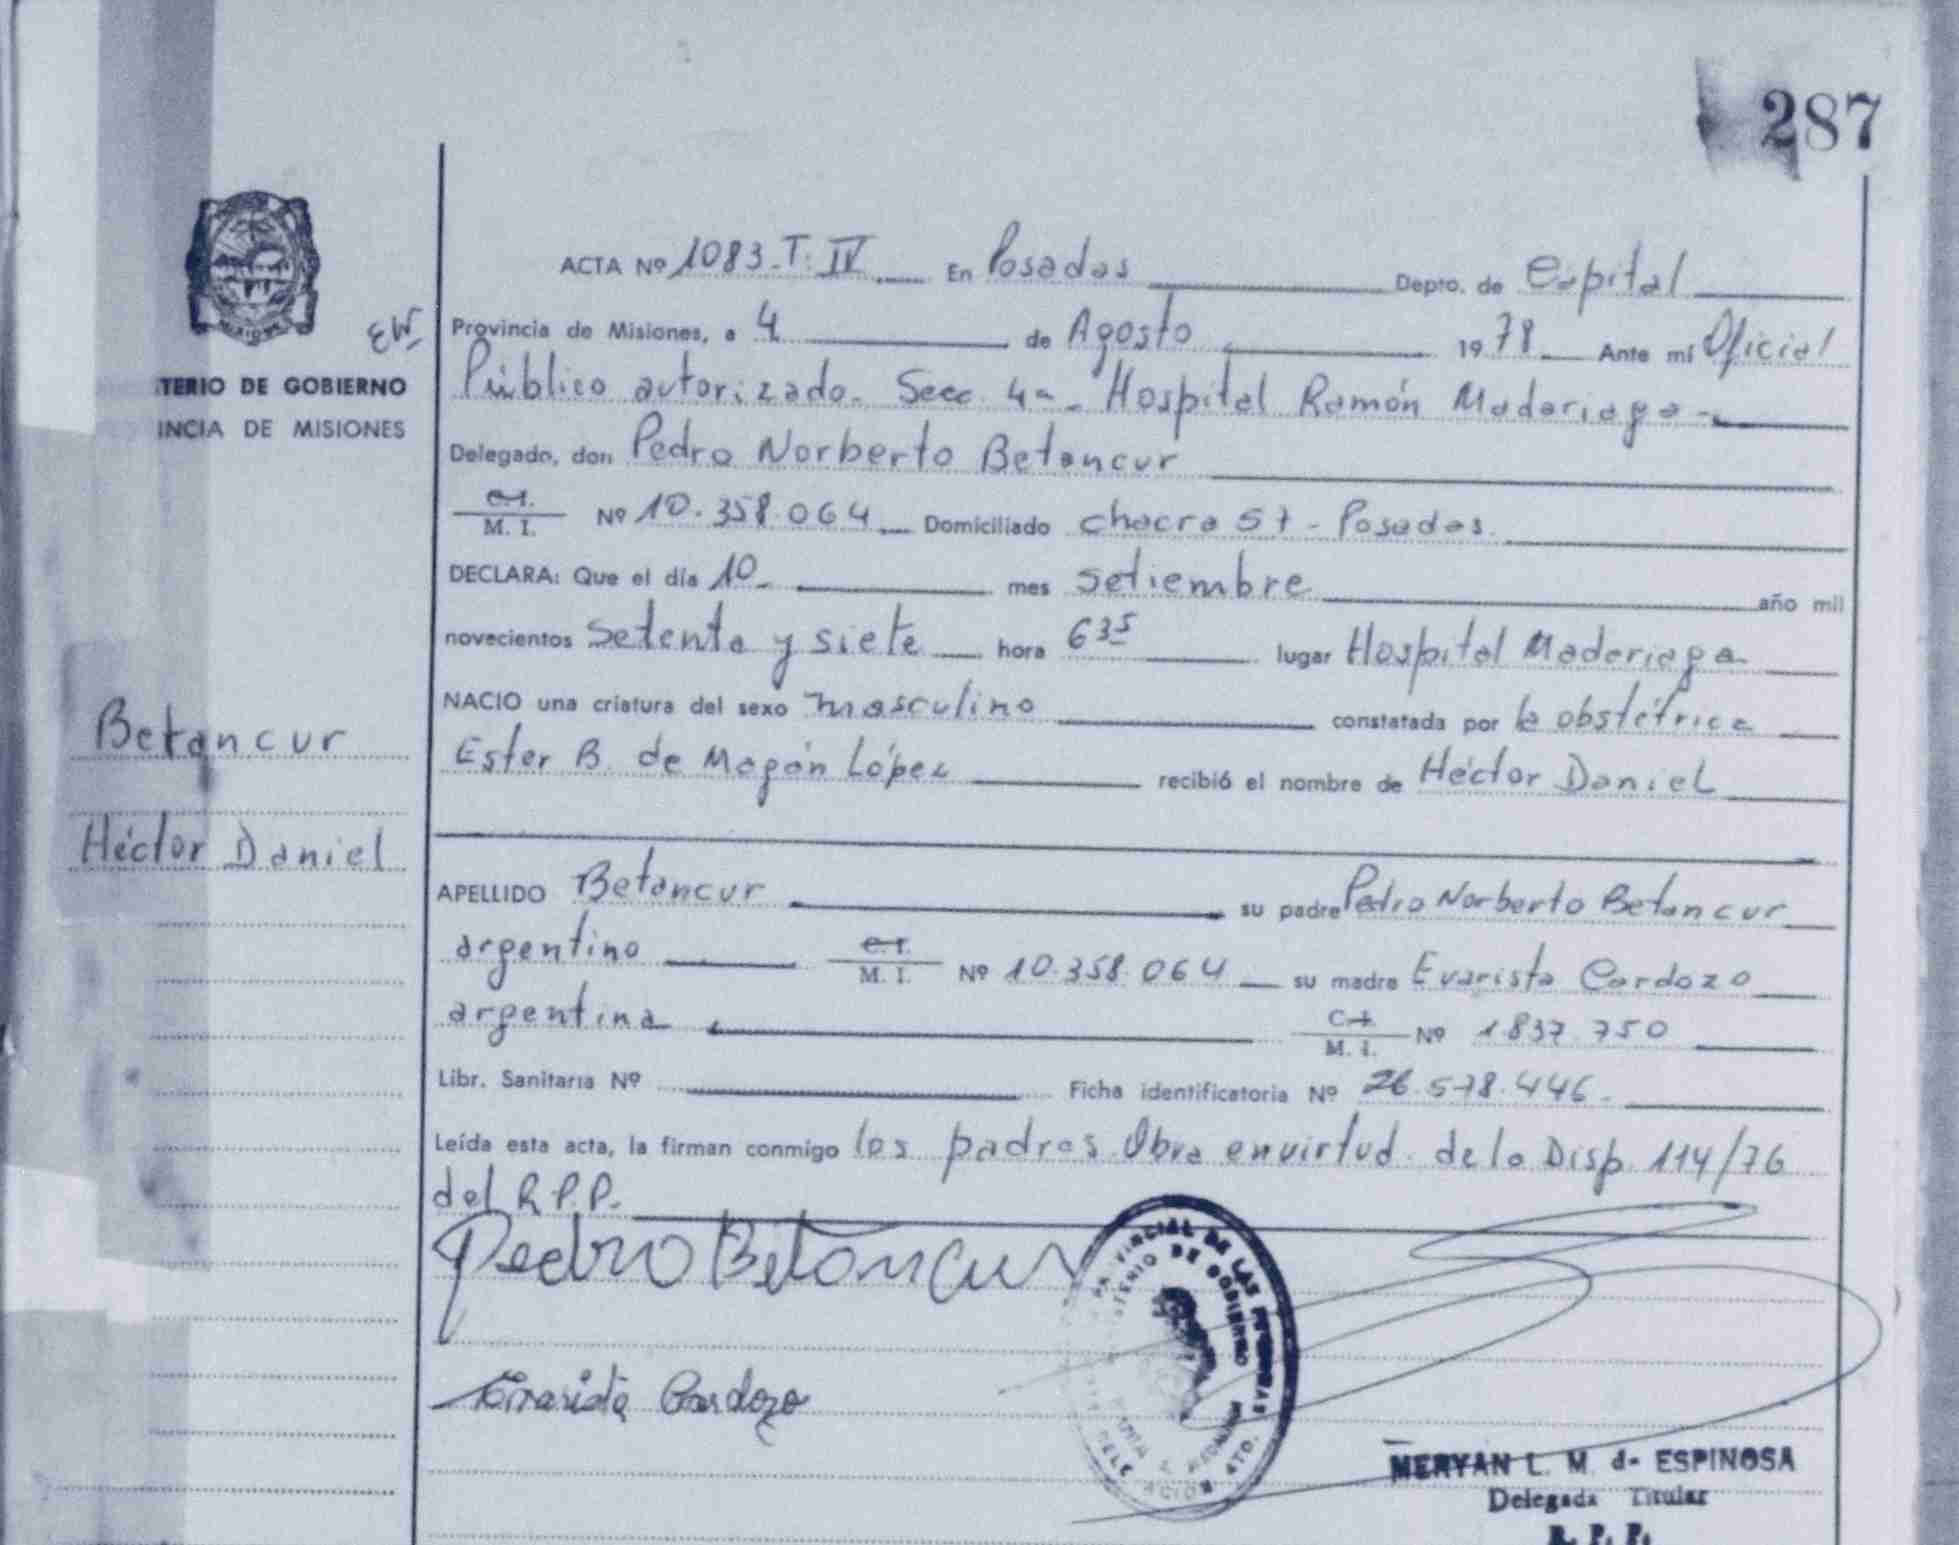 287
ACTA Nº 1083. T. IV En Posadas Depto. de Capital
Provincia de Misiones, a 4 de Agosto 1978 Ante mí Oficial
Público autorizado. Secc. 4ª. Hospital Ramón Madariaga
Delegado, don Pedro Norberto Betancur
C.I. M. I. Nº 10.358.064 Domiciliado chacra 57 - Posadas.
DECLARA: Que el día 10 mes setiembre año mil
novecientos setenta y siete hora 6 35 lugar Hospital Madariaga
NACIO una criatura del sexo masculino constatada por la obstétrica
Ester B. de Magán López recibió el nombre de Héctor Daniel
APELLIDO Betancur su padre Pedro Norberto Betancur
argentino C.I. M. I. Nº 10.358.064 su madre Evarista Cardozo
argentina C.I. M. I. Nº 1.837.750
Libr. Sanitaria Nº Ficha identificatoria Nº 26.578.446.
Leída esta acta, la firman conmigo los padres. Obra en virtud de la Disp. 114/76
del R.P.P.
Pedro Betancur
Evarista Cardozo
MERYAN L. M. de ESPINOSA
Delegada Titular
R. P. P.
TERIO DE GOBIERNO
INCIA DE MISIONES
Betancur
Héctor Daniel
VINCIAL DE LAS PERSONAS
TERIO DE GOBIERNO